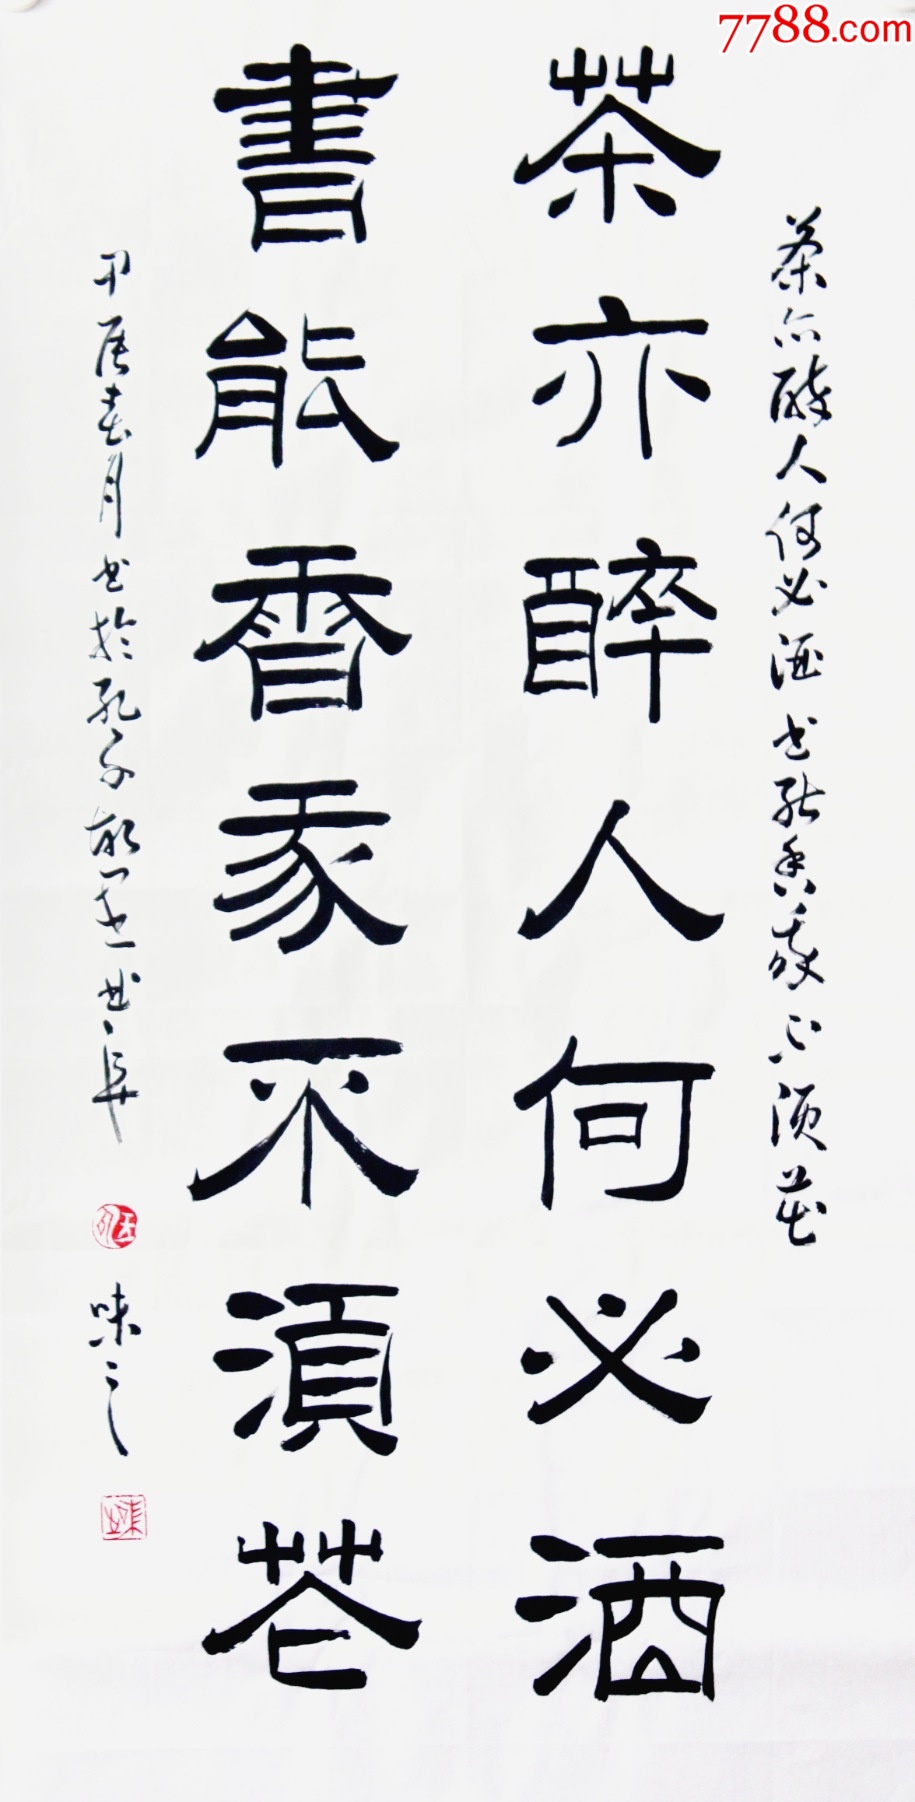 7788.com
茶亦醉人何必酒书能香我不须花
茶亦醉人何必酒
書能香我不須花
甲辰春月书於孔子故里曲阜
味之